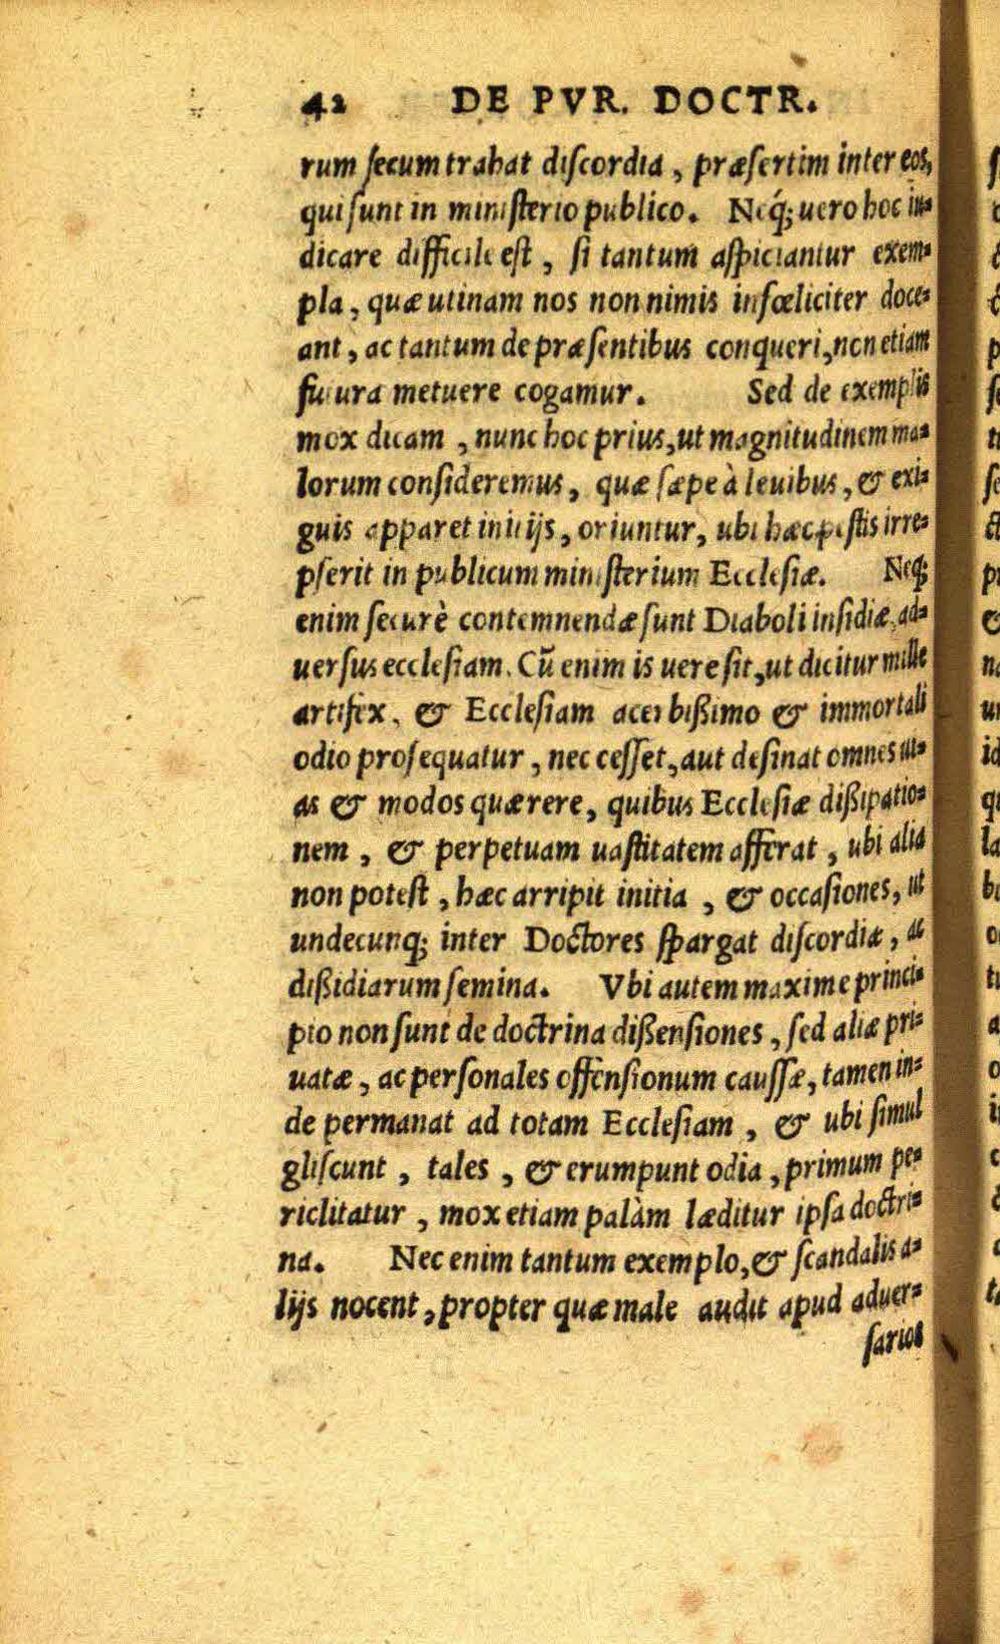 42 DE PVR. DOCTR.
rum ſecum trahat diſcordia, præſertim inter eos,
qui ſunt in miniſterio publico. Neq́; uero hoc in=
dicare difficile eſt, ſi tantum aſpiciantur exem=
pla, quæ utinam nos non nimis infœliciter doce=
ant, ac tantum de præſentibus conqueri, non etiam
futura metuere cogamur. Sed de exemplis
mox dicam, nunc hoc prius, ut magnitudinem ma=
lorum conſideremus, quæ ſæpe à leuibus, & exi=
guis apparet initijs, oriuntur, ubi hæc peſtis irre=
pſerit in publicum miniſterium Eccleſiæ. Neq;
enim ſecurè contemnendæ ſunt Diaboli inſidiæ ad=
uerſus eccleſiam. Cũ enim is uere ſit, ut dicitur mille
artifex, & Eccleſiam acerbißimo & immortali
odio proſequatur, nec ceſſet, aut deſinat omnes ui=
as & modos quærere, quibus Eccleſiæ dißipatio=
nem, & perpetuam uaſtitatem afferat, ubi alia
non poteſt, hæc arripit initia, & occaſiones, ut
undecunq; inter Doctores ſpargat diſcordiæ, ac
dißidiarum ſemina. Vbi autem maxime princi=
pio non ſunt de doctrina dißenſiones, ſed aliæ pri=
uatæ, ac perſonales offenſionum cauſſæ, tamen in=
de permanat ad totam Eccleſiam, & ubi ſimul
gliſcunt, tales, & erumpunt odia, primum pe=
riclitatur, mox etiam palàm læditur ipſa doctri=
na. Nec enim tantum exemplo, & ſcandalis a=
lijs nocent, propter quæ male audit apud aduer=
ſarios